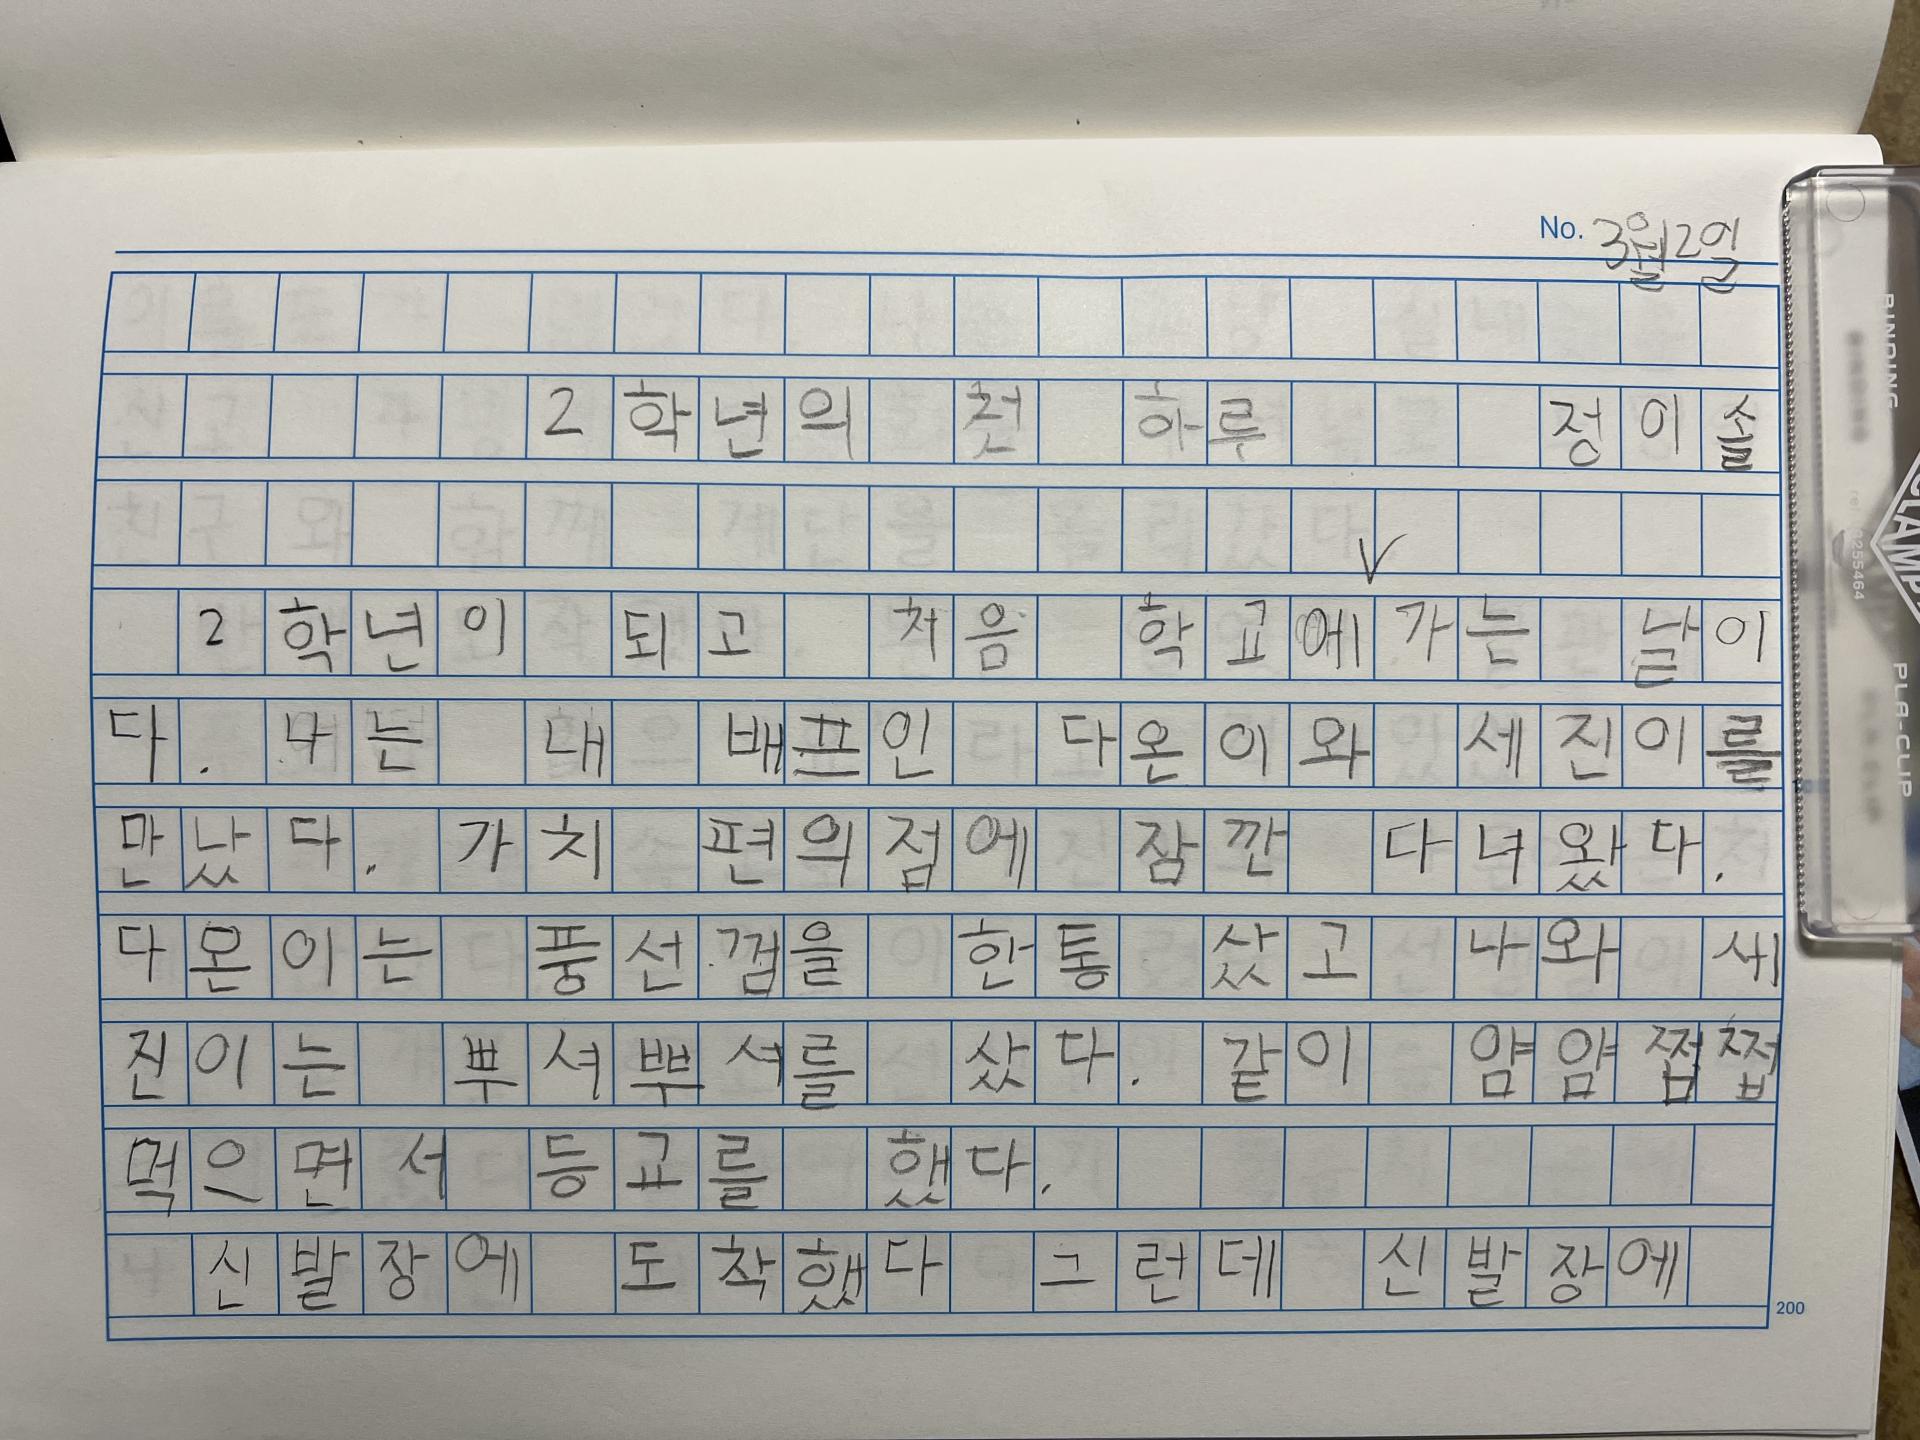 No. 3월2일
2학년의 첫 하루 정이솔
2학년이 되고 처음 학교에∨가는 날이
다. 나는 내 배프인 다온이와 세진이를
만났다. 가치 편의점에 잠깐 다녀왔다.
다온이는 풍선껌을 한통 샀고 나와 세
진이는 뿌셔뿌셔를 샀다. 같이 얌얌쩝쩝
먹으면서 등교를 했다.
신발장에 도착했다 그런데 신발장에
200
BINDING
CLAMP
PLA-CLIP